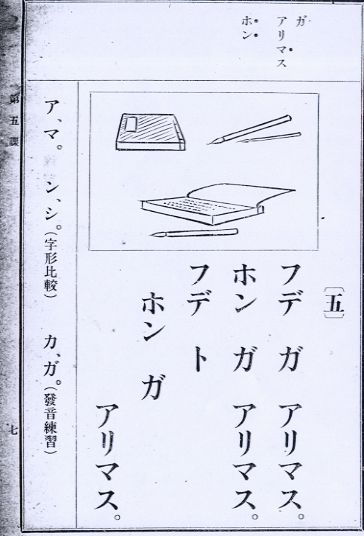 ガ
アリマス
ホン
〔五〕
フデ ガ アリマス。
ホン ガ アリマス。
フデ ト
ホン ガ
アリマス。
ア、マ。 ン、シ。(字形比較) カ、ガ。(發音練習)
第五課 七